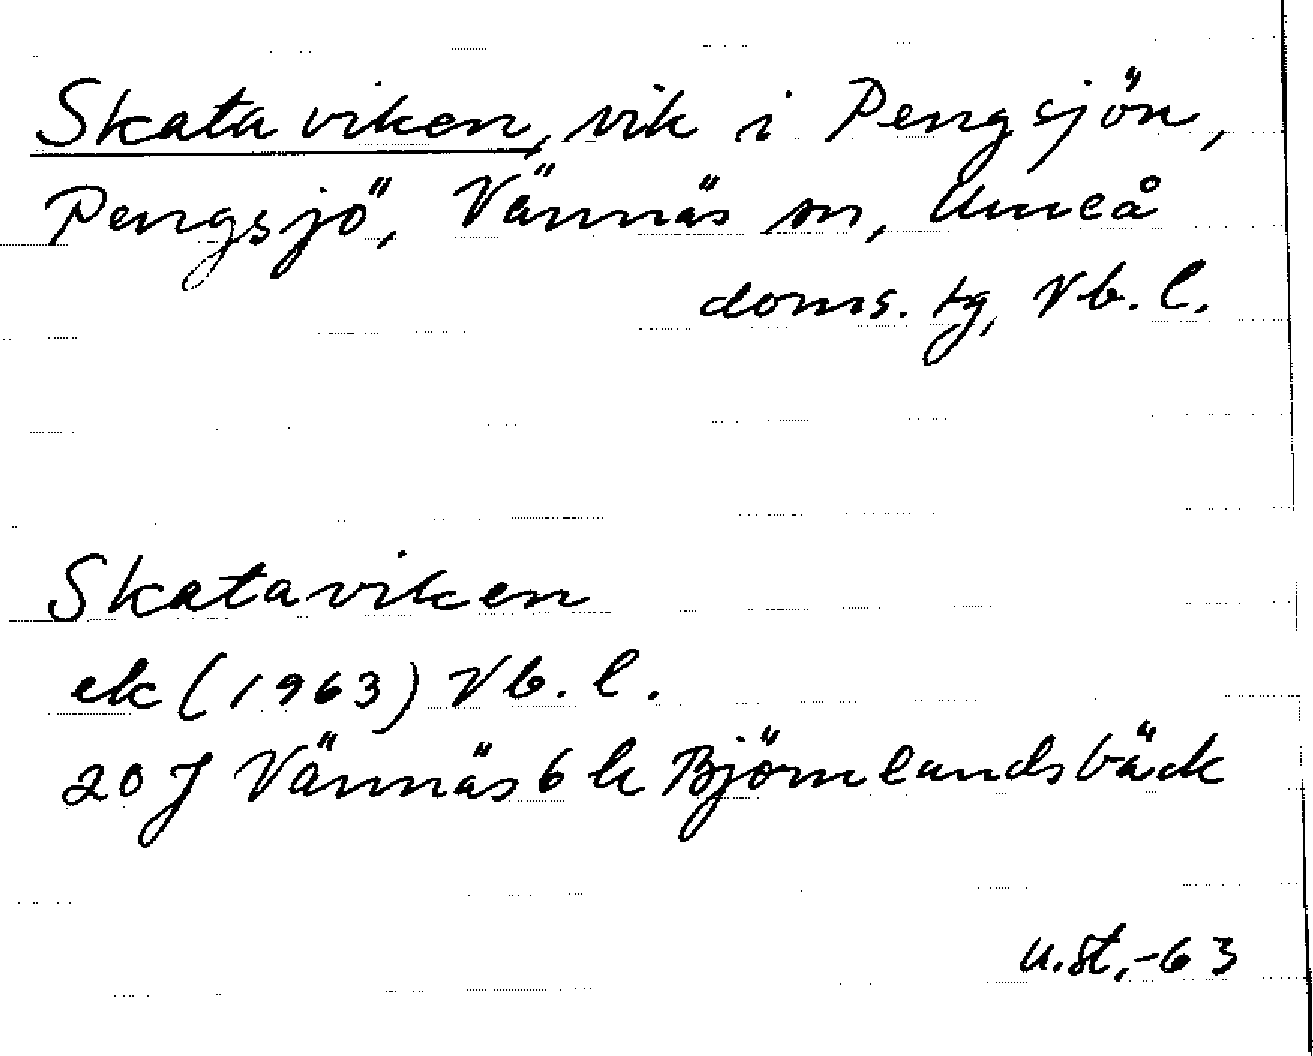 Skataviken, vik i Pengsjön,
Pengsjö, Vännäs sn, Umeå
doms. tg, Vb. l.
Skataviken
ek (1963) Vb. l.
20 J Vännäs 6 h Björnlandsbäck
u.st,-63